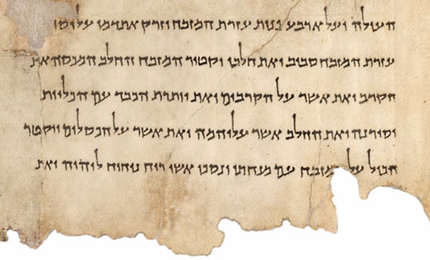 העולה ועל ארבע פנות עזרת המזבח וזרק את דמו על יסוד
עזרת המזבח סביב ואת חלבו יקטיר המזבח החלב המכסה את
הקרב ואת אשר על הקרבים ואת יותרת הכבד עם הכליות
יסירנה ואת החלב אשר עליהמה ואת אשר על הכסלים ויקטר
הכול על המזבח עם מנחתו ונסכו אשי ריח ניחוח ליהוה ואת